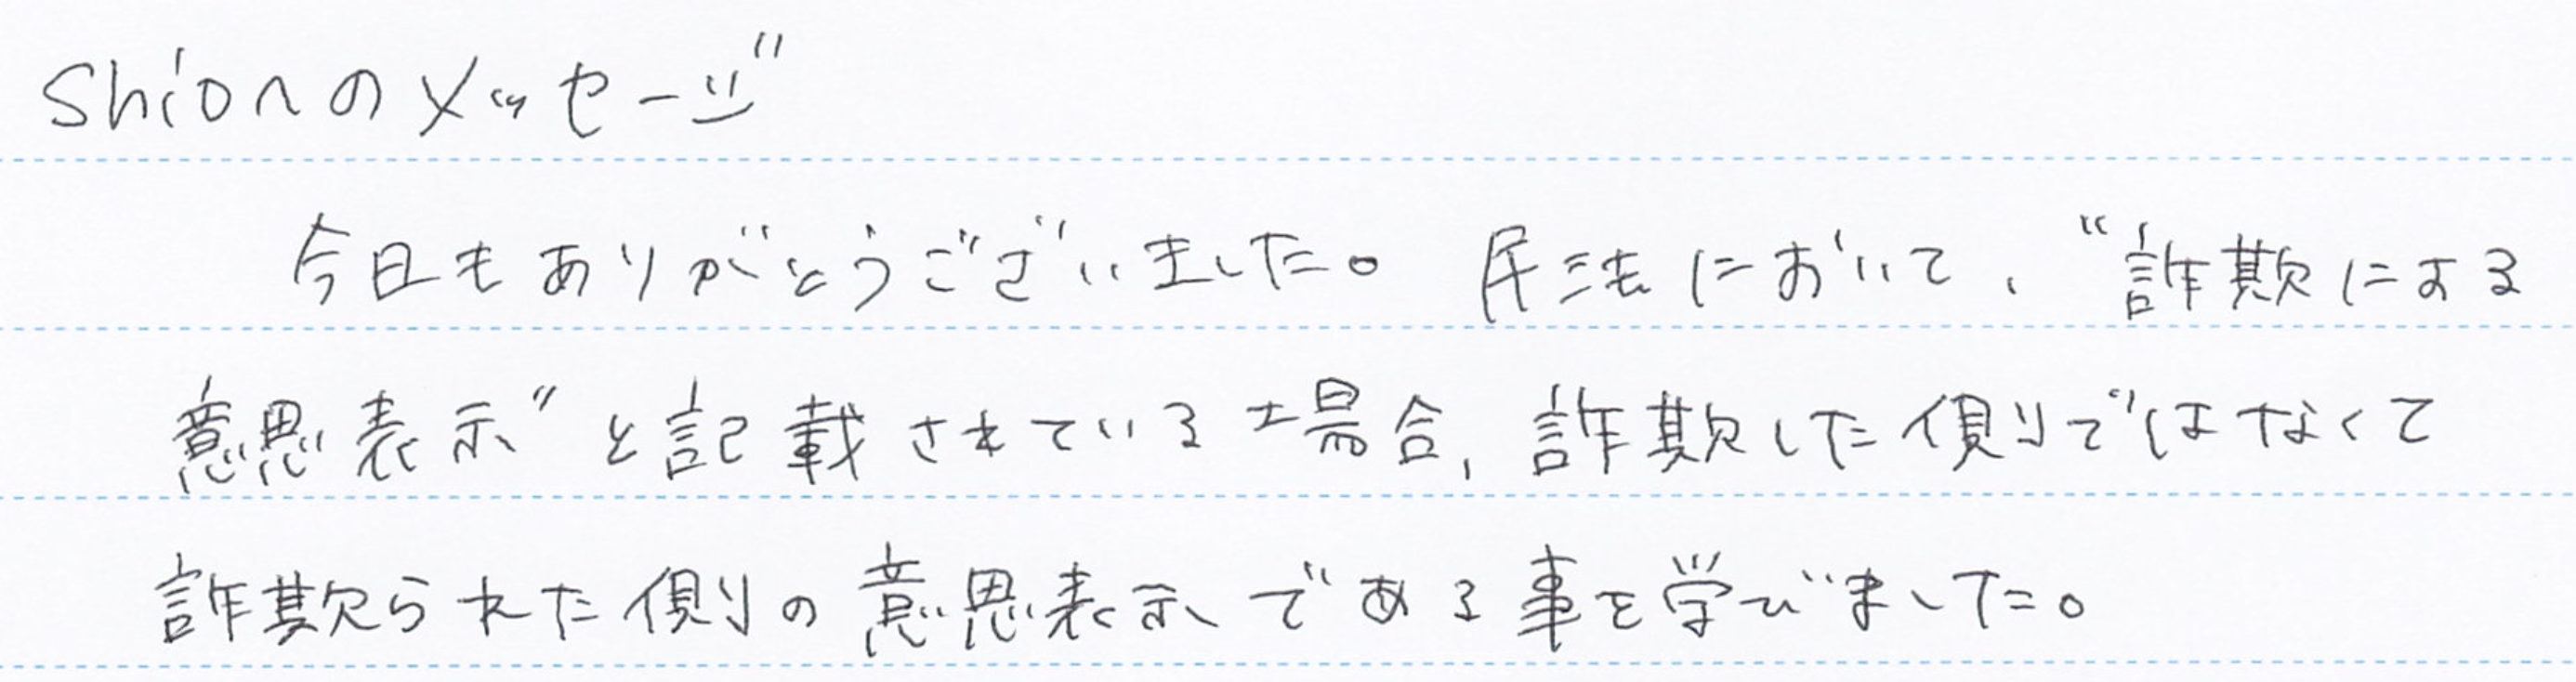 Shionのメッセージ"
今日もありがとうございました。民法において、"詐欺による
意思表示"と記載されている場合、詐欺した側ではなくて
詐欺られた側の意思表示である事を学びました。